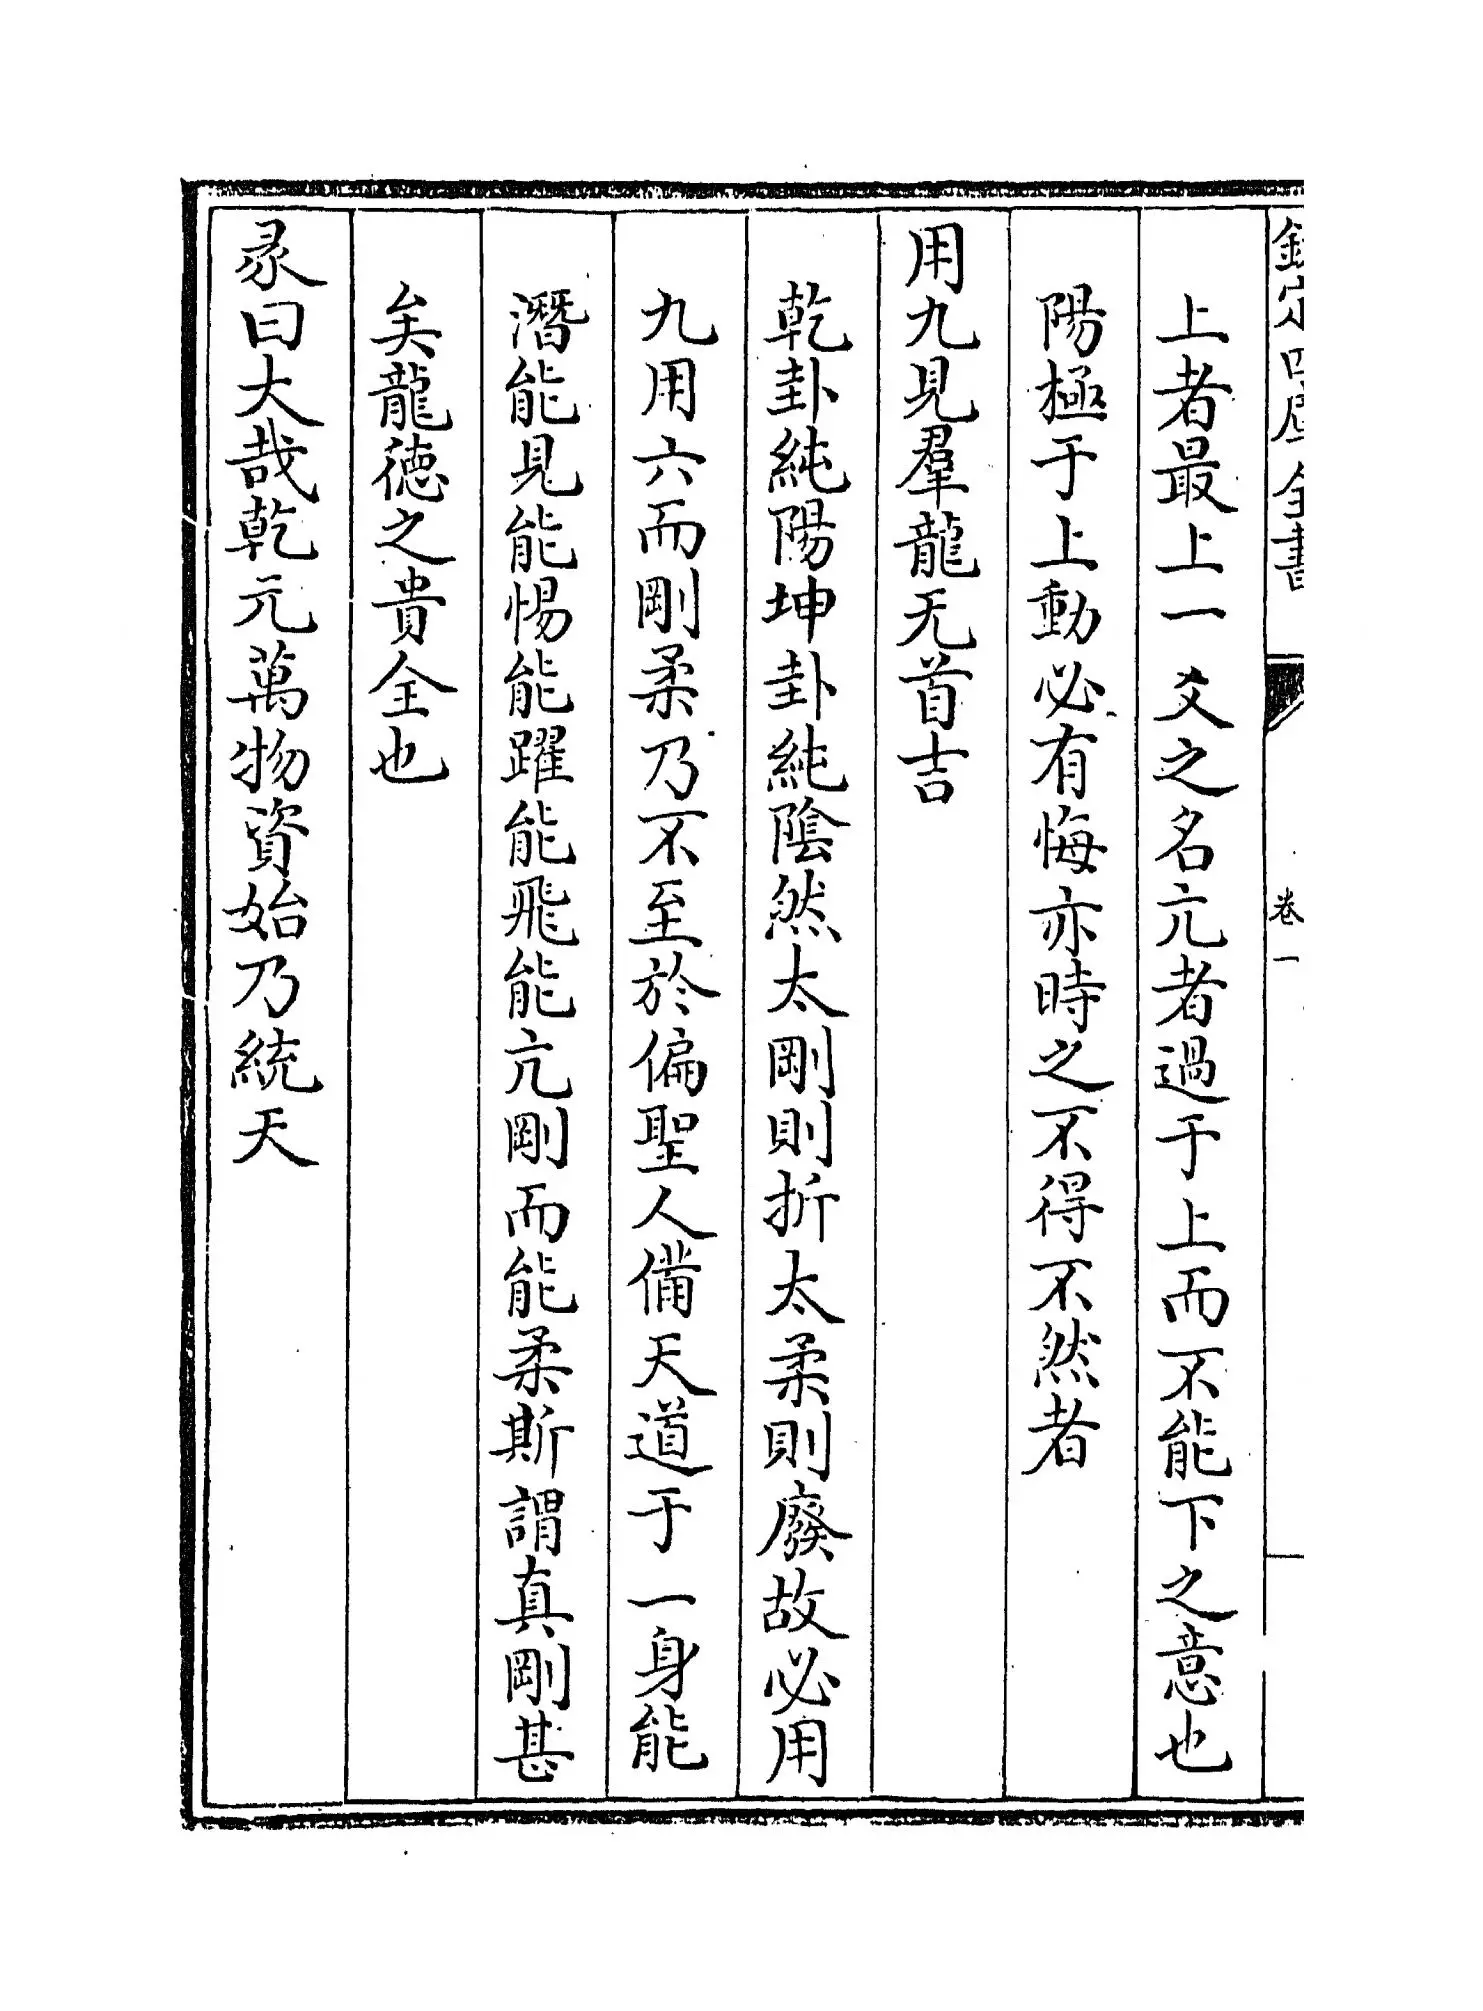 欽定四庫全書
卷一
上者最上一爻之名亢者過于上而不能下之意也
陽極于上動必有悔亦時之不得不然者
用九見羣龍无首吉
乾卦純陽坤卦純陰然太剛則折太柔則廢故必用
九用六而剛柔乃不至於偏聖人備天道于一身能
潛能見能惕能躍能飛能亢剛而能柔斯謂真剛甚
矣龍德之貴全也
彖曰大哉乾元萬物資始乃統天